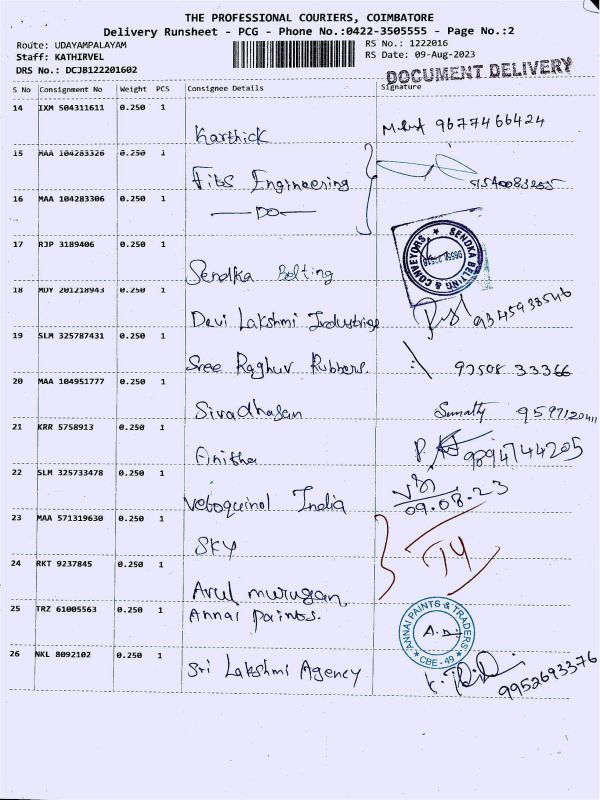 THE PROFESSIONAL COURIERS, COIMBATORE
Delivery Runsheet - PCG - Phone No.:0422-3505555 - Page No.:2
Route: UDAYAMPALAYAM
RS No.: 1222016
Staff: KATHIRVEL
RS Date: 09-Aug-2023
DRS No.: DCJB122201602
DOCUMENT DELIVERY
S No Consignment No Weight PCS Consignee Details Signature
14 IXM 504311611 0.250 1
Karthick 9677466424
15 MAA 104283326 0.250 1
Fibs Engineering
16 MAA 104283306 0.250 1
—DO—
17 RJP 3189406 0.250 1
Sendka Belting
SENDKA BELTING & CONVEYORS
18 MDY 201218943 0.250 1
Devi Lakshmi Industries 9345938546
19 SLM 325787431 0.250 1
Sree Raghuv Rubbers. 97508 33366
20 MAA 104951777 0.250 1
Sivadhasan 9597120411
21 KRR 5758913 0.250 1
Anitha 9894744205
22 SLM 325733478 0.250 1
Vetoquinol India 09.08.23
23 MAA 571319630 0.250 1
SKY
24 RKT 9237845 0.250 1
Arul murugan
25 TRZ 61005563 0.250 1
Annai Paints.
ANNAI PAINTS & TRADERS
CBE-49
26 NKL 8092102 0.250 1
Sri Lakshmi Agency 9952693376